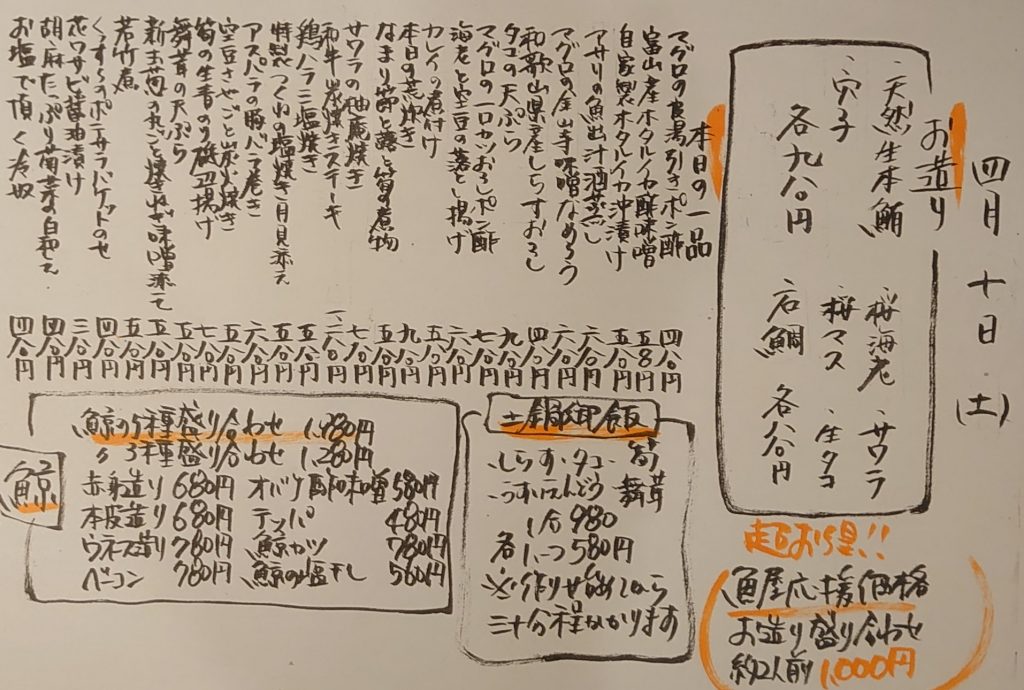 四月十日(土)
お造り
天然生本鮪 桜海老 サワラ
穴子 桜マス 生タコ
各九八〇円 石鯛 各八八〇円
超お得!!
魚屋応援価格
お造り盛り合わせ
約2人前 1,000円
本日の一品
マグロの長湯引きポン酢 四八〇円
富山産ホタルイカ酢味噌 五八〇円
自家製ホタルイカ沖漬け 五八〇円
アサリの魚出汁酒蒸し 六八〇円
マグロの金山寺味噌なめろう 六八〇円
和歌山県産しらすおろし 四八〇円
タコの天ぷら 九八〇円
マグロの一口カツおろしポン酢 七八〇円
海老と空豆の落とし揚げ 六八〇円
カレイの煮付け 五八〇円
本日の荒炊き 九八〇円
なまり節と蕗と筍の煮物 五八〇円
サワラの柚庵焼き 七八〇円
和牛炭焼きステーキ
鶏ハラミ塩焼き 五八〇円
特製つくねの塩焼き月見添え 五八〇円
アスパラの豚バラ巻き 六八〇円
空豆さやごと炭火焼き 五八〇円
筍の生青のり磯辺揚げ 七八〇円
舞茸の天ぷら 五八〇円
新玉葱の丸ごと焼きねぎ味噌添え 五八〇円
若竹煮 五八〇円
くんせいポテサラバケットのせ 四八〇円
花ワサビ醤油漬け 三八〇円
胡麻たっぷり菊菜の白和え 四八〇円
お塩で頂く冷奴 四八〇円
土鍋御飯
・しらす・タコ・筍
・うすいえんどう・舞茸
1合 980
各 1/2 580円
※作り始めてから
三十分程かかります
鯨
鯨の5種盛り合わせ 1,980円
〃3種盛り合わせ 1,280円
赤身造り 680円 オバケ酢味噌 580円
本皮造り 680円 テッパ 480円
ウネス造り 780円 鯨カツ 780円
ベーコン 780円 鯨の塩干し 580円